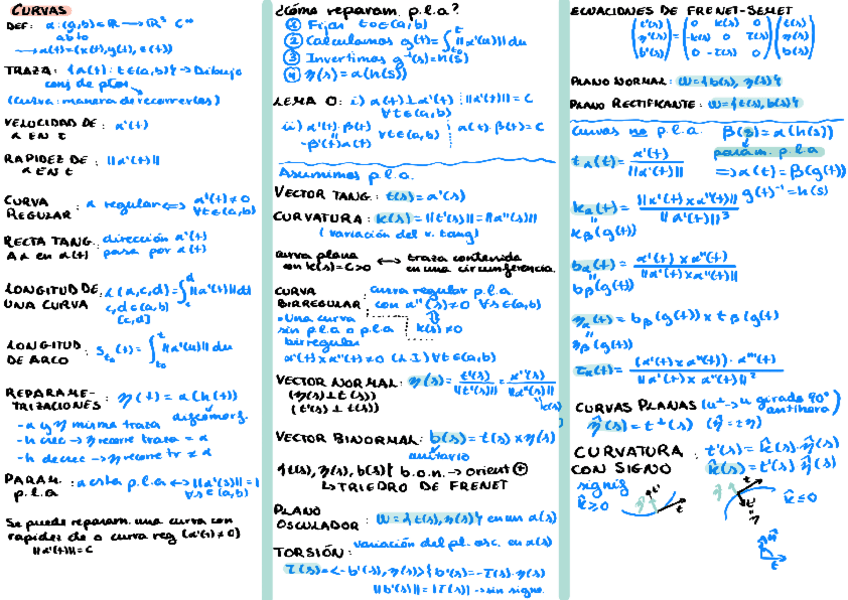 CURVAS
DEF: α:(a,b)⊂ℝ → ℝ³ C∞
a b to
→ α(t)=(x(t),y(t),z(t))
TRAZA: {α(t): t∈(a,b)} → Dibujo
conj de ptos
(curva: manera de recorrerlos)
VELOCIDAD DE α EN t : α'(t)
RAPIDEZ DE α EN t : ||α'(t)||
CURVA REGULAR : α regular ⟺ α'(t)≠0
∀t∈(a,b)
RECTA TANG. A α en α(t) : dirección α'(t)
pasa por α(t)
LONGITUD DE UNA CURVA : L(α,c,d)=∫_c^d ||α'(t)|| dt
c,d∈(a,b)
[c,d]
LONGITUD DE ARCO : S_{t₀}(t)=∫_{t₀}^t ||α'(u)|| du
REPARAMETRIZACIONES : η(t) = α(h(t))
difeomorf.
- α y η misma traza
- h crec → η recorre traza = α
- h decrec → η recorre tr ≠ α
PARAM. p.l.a : α está p.l.a ⟷ ||α'(s)||=1
∀s∈(a,b)
Se puede reparam. una curva con
rapidez de α curva reg (α'(t)≠0)
||α'(t)||=C
¿Cómo reparam. p.l.a?
① Fijar t₀∈(a,b)
② Calculamos g(t)=∫_{t₀}^t ||α'(u)|| du
③ Invertimos g⁻¹(s)=h(s)
④ η(s)=α(h(s))
LEMA 0: i) α(t)⊥α'(t) : ||α(t)||=C
∀t∈(a,b)
ii) α'(t)·β(t)
=-β'(t)α(t) ∀t∈(a,b) α(t)·β(t)=C
Asumimos p.l.a.
VECTOR TANG: t(s)=α'(s)
CURVATURA: k(s)=||t'(s)||=||α''(s)||
(variación del v. tang)
curva plana con k(s)=C>0 ⟷ traza contenida en una circunferencia.
CURVA BIRREGULAR : curva regular p.l.a
con α''(s)≠0 ∀s∈(a,b)
• Una curva sin p.l.a o p.l.a birregular
k(s)≠0
α'(t)×α''(t)≠0 (L.I) ∀t∈(a,b)
VECTOR NORMAL: η(s)= t'(s)/||t'(s)|| = α''(s)/||α''(s)||
k(s)
(η(s)⊥t(s))
(t'(s)⊥t(s))
VECTOR BINORMAL: b(s)=t(s)×η(s)
unitario
{t(s), η(s), b(s)} b.o.n. → orient ⊕
↳ TRIEDRO DE FRENET
PLANO OSCULADOR : W={t(s),η(s)} en un α(s)
TORSIÓN: variación del pl. osc. en α(s)
τ(s)=<-b'(s),η(s)>{b'(s)=-τ(s)·η(s)
||b'(s)||=|τ(s)| → sin signo.
ECUACIONES DE FRENET-SERRET
(t'(s) η'(s) b'(s)) = (0 k(s) 0; -k(s) 0 τ(s); 0 -τ(s) 0)(t(s) η(s) b(s))
PLANO NORMAL: W={b(s),η(s)}
PLANO RECTIFICANTE: W={t(s),b(s)}
Curvas no p.l.a. β(s)=α(h(s))
param. p.l.a
t_α(t)= α'(t)/||α'(t)|| ⟹ α(t)=β(g(t))
g(t)⁻¹=h(s)
k_α(t)= ||α'(t)×α''(t)||/||α'(t)||³
"
k_β(g(t))
b_α(t)= α'(t)×α''(t)/||α'(t)×α''(t)||
"
b_β(g(t))
η_α(t)= b_β(g(t))×t_β(g(t)
"
η_β(g(t))
τ_α(t)= (α'(t)×α''(t))·α'''(t)/||α'(t)×α''(t)||²
CURVAS PLANAS (u^⊥ → u girado 90° antihora)
η̂(s)=t^⊥(s) (η̂=±η)
CURVATURA CON SIGNO : t'(s)=k̂(s)·η̂(s)
k̂(s)=t'(s)·η̂(s)
signif
k̂≥0
η̂ t' t
η̂ t t' η
k̂≤0
η̂ t